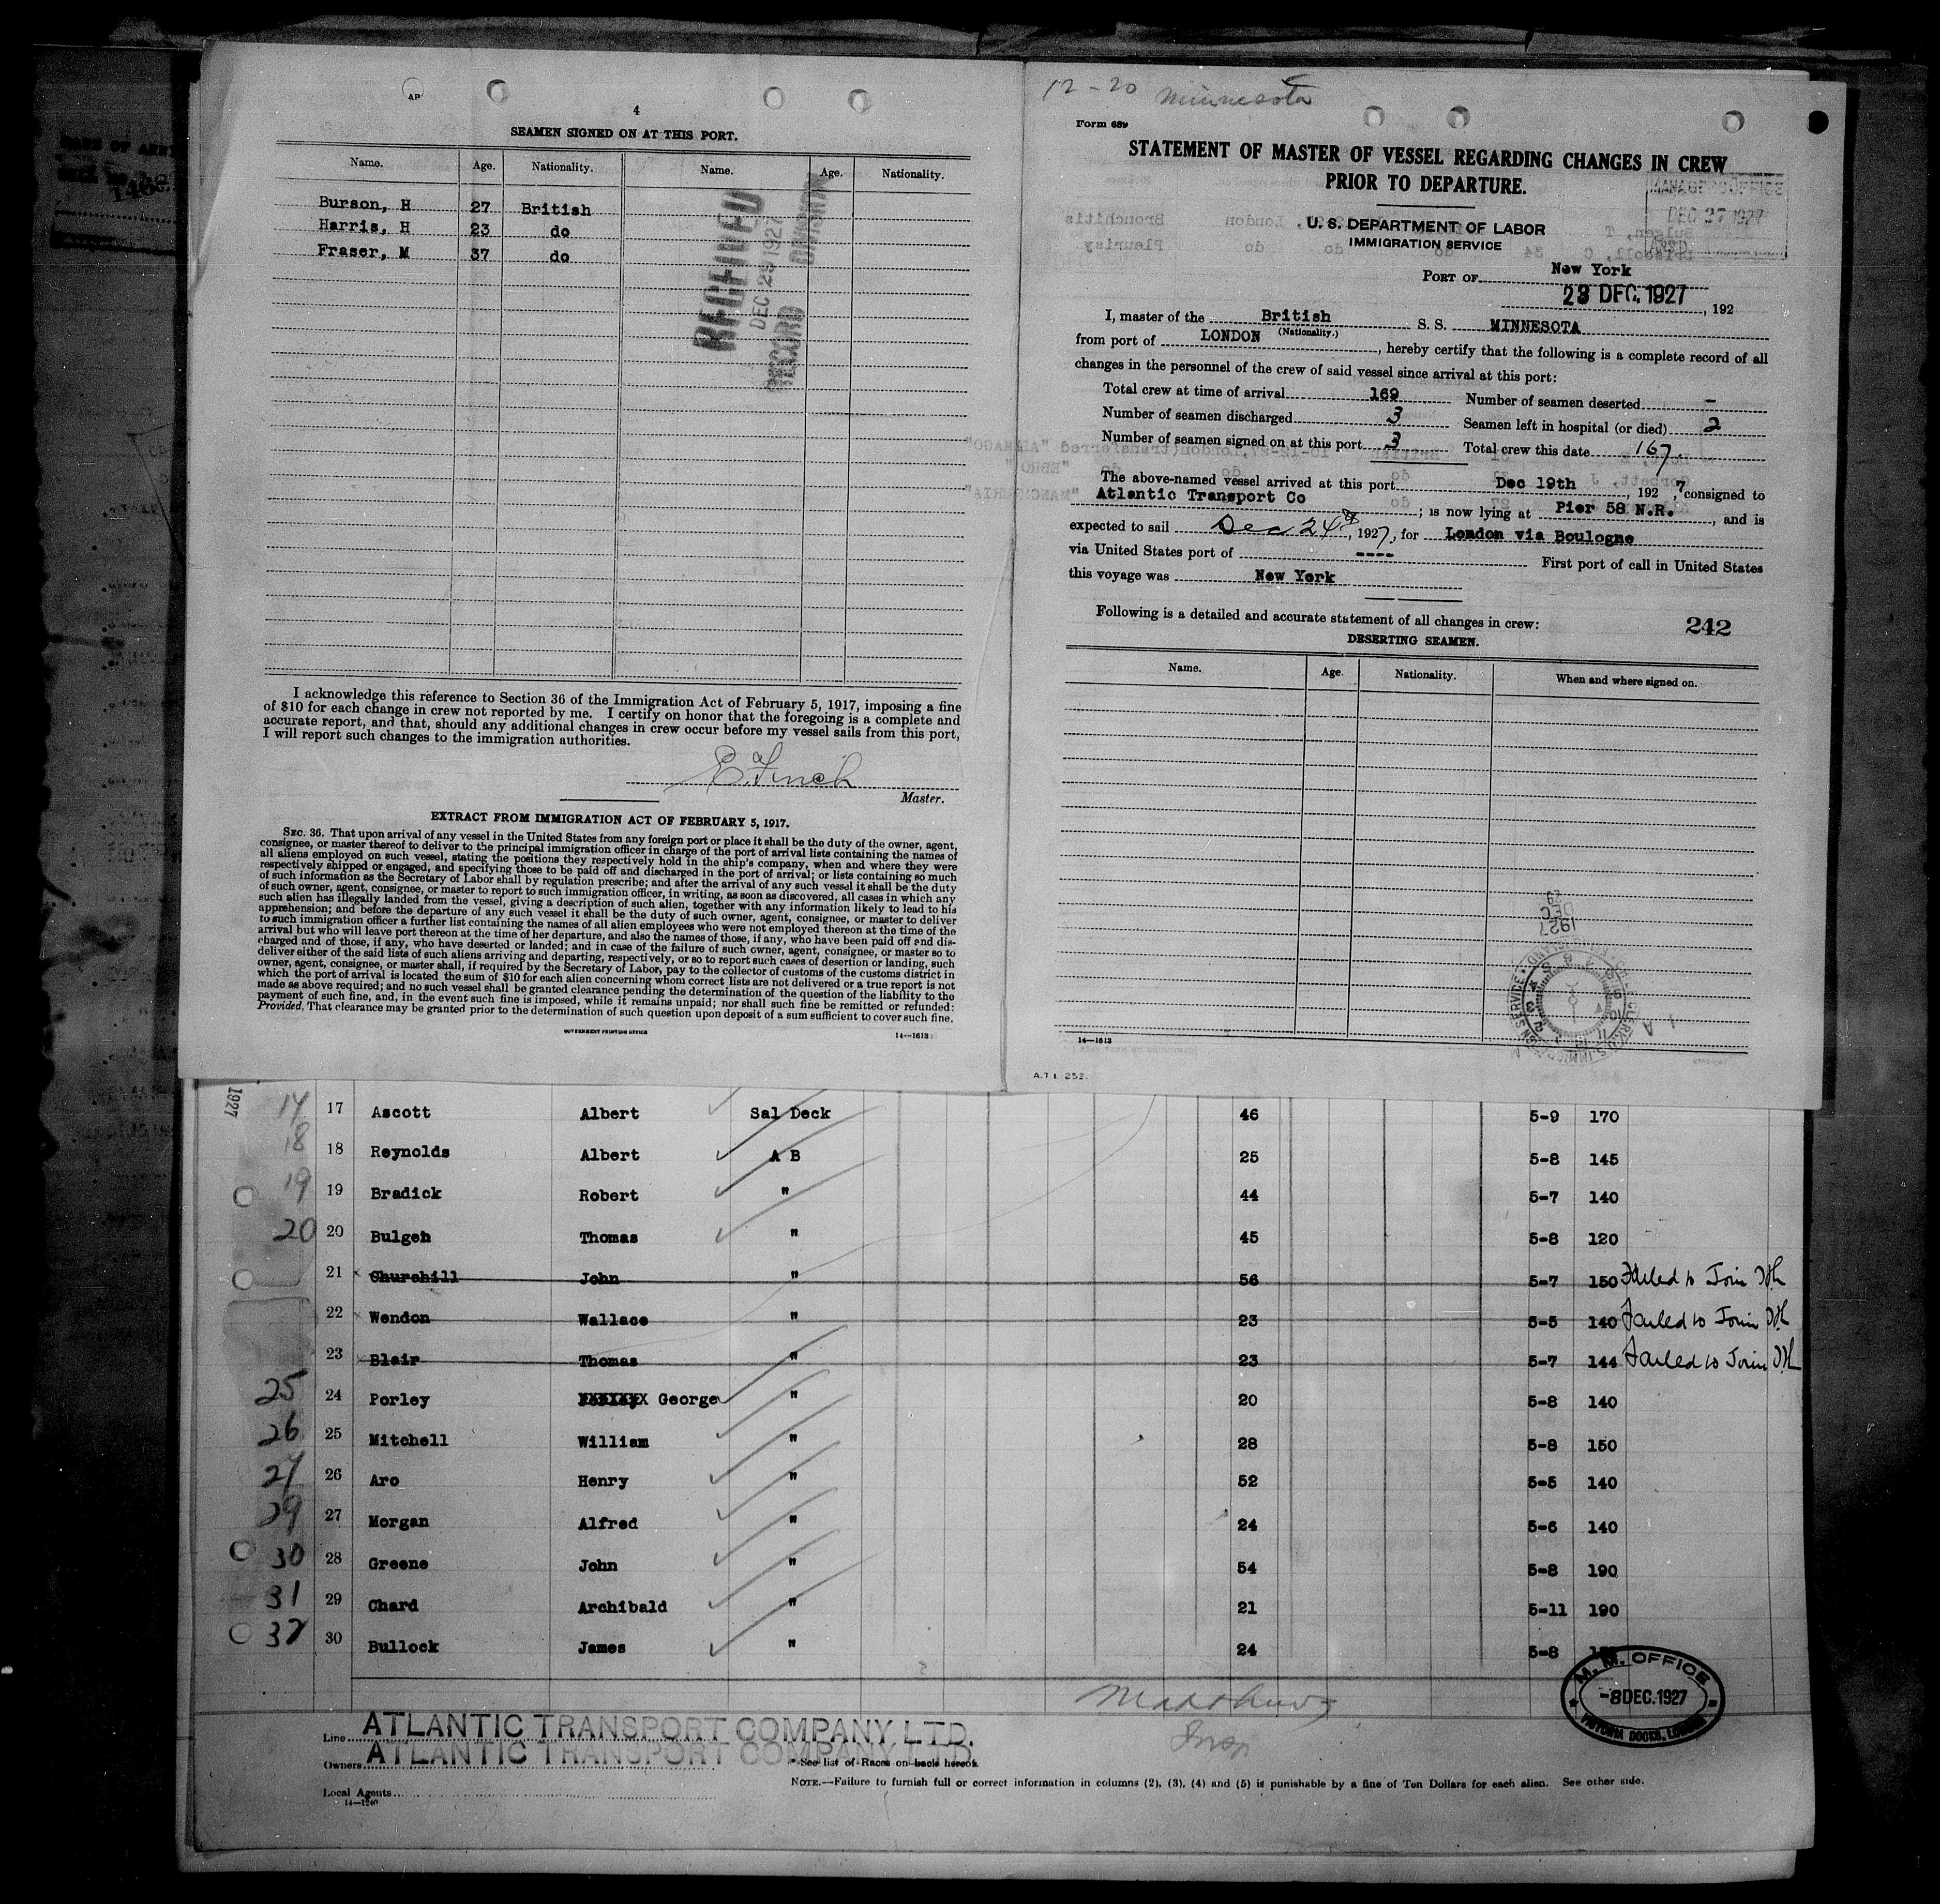 4
SEAMEN SIGNED ON AT THIS PORT.
Name. Age. Nationality. Name. Age. Nationality.
Burson, H 27 British
Harris, H 23 do
Fraser, M 37 do
RECEIVED
DEC 29 1927
RECORD DIVISION
I acknowledge this reference to Section 36 of the Immigration Act of February 5, 1917, imposing a fine
of $10 for each change in crew not reported by me. I certify on honor that the foregoing is a complete and
accurate report, and that, should any additional changes in crew occur before my vessel sails from this port,
I will report such changes to the immigration authorities.
E. Finch
Master.
EXTRACT FROM IMMIGRATION ACT OF FEBRUARY 5, 1917.
SEC. 36. That upon arrival of any vessel in the United States from any foreign port or place it shall be the duty of the owner, agent,
consignee, or master thereof to deliver to the principal immigration officer in charge of the port of arrival lists containing the names of
all aliens employed on such vessel, stating the positions they respectively hold in the ship's company, when and where they were
respectively shipped or engaged, and specifying those to be paid off and discharged in the port of arrival; or lists containing so much
of such information as the Secretary of Labor shall by regulation prescribe; and after the arrival of any such vessel it shall be the duty
of such owner, agent, consignee, or master to report to such immigration officer, in writing, as soon as discovered, all cases in which any
such alien has illegally landed from the vessel, giving a description of such alien, together with any information likely to lead to his
apprehension; and before the departure of any such vessel it shall be the duty of such owner, agent, consignee, or master to deliver
to such immigration officer a further list containing the names of all alien employees who were not employed thereon at the time of the
arrival but who will leave port thereon at the time of her departure, and also the names of those, if any, who have been paid off and dis-
charged and of those, if any, who have deserted or landed; and in case of the failure of such owner, agent, consignee, or master so to
deliver either of the said lists of such aliens arriving and departing, respectively, or so to report such cases of desertion or landing, such
owner, agent, consignee, or master shall, if required by the Secretary of Labor, pay to the collector of customs of the customs district in
which the port of arrival is located the sum of $10 for each alien concerning whom correct lists are not delivered or a true report is not
made as above required; and no such vessel shall be granted clearance pending the determination of the question of the liability to the
payment of such fine, and, in the event such fine is imposed, while it remains unpaid; nor shall such fine be remitted or refunded:
Provided, That clearance may be granted prior to the determination of such question upon deposit of a sum sufficient to cover such fine.
GOVERNMENT PRINTING OFFICE
14—1613
12-20 Minnesota
Form 689
STATEMENT OF MASTER OF VESSEL REGARDING CHANGES IN CREW
PRIOR TO DEPARTURE.
MANAGERS OFFICE
DEC 27 1927
ANS'D
U. S. DEPARTMENT OF LABOR
IMMIGRATION SERVICE
PORT OF New York
23 DEC. 1927, 192
I, master of the British S. S. MINNESOTA
(Nationality.)
from port of LONDON, hereby certify that the following is a complete record of all
changes in the personnel of the crew of said vessel since arrival at this port:
Total crew at time of arrival 169 Number of seamen deserted -
Number of seamen discharged 3 Seamen left in hospital (or died) 2
Number of seamen signed on at this port 3 Total crew this date 167
The above-named vessel arrived at this port Dec 19th, 1927, consigned to
Atlantic Transport Co; is now lying at Pier 58 N.R., and is
expected to sail Dec 24th, 1927, for London via Boulogne
via United States port of ---- First port of call in United States
this voyage was New York
Following is a detailed and accurate statement of all changes in crew: 242
DESERTING SEAMEN.
Name. Age. Nationality. When and where signed on.
1927
DEC
29
14—1613
A.T.L. 252.
1927
17 Ascott Albert Sal Deck 46 5-9 170
18 18 Reynolds Albert A B 25 5-8 145
19 19 Bradick Robert " 44 5-7 140
20 20 Bulgen Thomas " 45 5-8 120
21 Churchill John " 56 5-7 150 Failed to Join
22 Wendon Wallace " 23 5-5 140 Failed to Join
23 Blair Thomas " 23 5-7 144 Failed to Join
25 24 Porley George " 20 5-8 140
26 25 Mitchell William " 28 5-8 150
27 26 Aro Henry " 52 5-5 140
29 27 Morgan Alfred " 24 5-6 140
30 28 Greene John " 54 5-8 190
31 29 Chard Archibald " 21 5-11 190
32 30 Bullock James " 24 5-8
Matthews
Insp
M. M. OFFICE
-8 DEC. 1927
VICTORIA DOCKS, LONDON
Line ATLANTIC TRANSPORT COMPANY LTD.
Owners ATLANTIC TRANSPORT COMPANY LTD.
See list of Races on back hereof.
NOTE.—Failure to furnish full or correct information in columns (2), (3), (4) and (5) is punishable by a fine of Ten Dollars for each alien. See other side.
Local Agents
14—1240